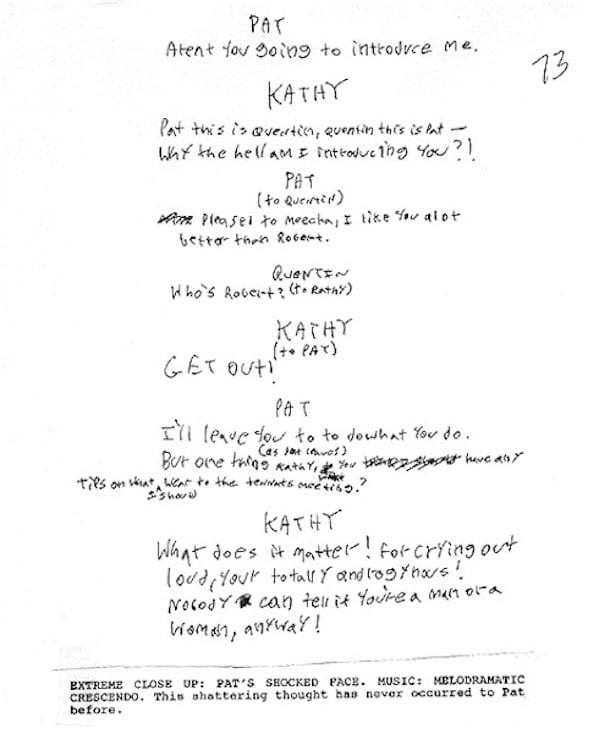 PAT
Arent You going to introduce me.
73
KATHY
Pat this is Quentin, Quentin this is Pat —
Why the hell am I introducing You?!
PAT
(to Quentin)
Pleased to Meecha, I like You alot
better than Robert.
QUENTIN
Who's Robert? (to Kathy)
KATHY
(to PAT)
GET OUT!
PAT
I'll leave You to to dowhat You do.
(as Pat leaves)
But one thing Kathy, You have any
tips on what wear to the tennats meeting?
I should
KATHY
What does it matter! For crying out
loud, Your totally androgynous!
Nobody can tell if You're a man or a
Woman, anyway!
EXTREME CLOSE UP: PAT'S SHOCKED FACE. MUSIC: MELODRAMATIC
CRESCENDO. This shattering thought has never occurred to Pat
before.